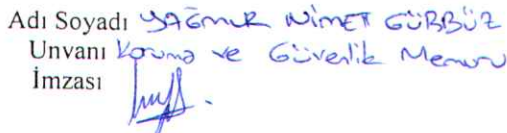 Adı Soyadı YAĞMUR NİMET GÜRBÜZ
Unvanı Koruma ve Güvenlik Memuru
İmzası